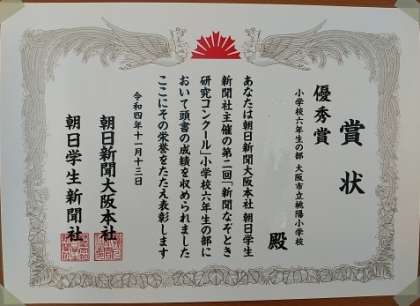 賞状
優秀賞
小学校六年生の部 大阪市立桃陽小学校
殿
あなたは朝日新聞大阪本社 朝日学生
新聞社主催の第二回「新聞なぞとき
研究コンクール」小学校六年生の部に
おいて頭書の成績を収められました
ここにその栄誉をたたえ表彰します
令和四年十一月十三日
朝日新聞大阪本社
朝日学生新聞社